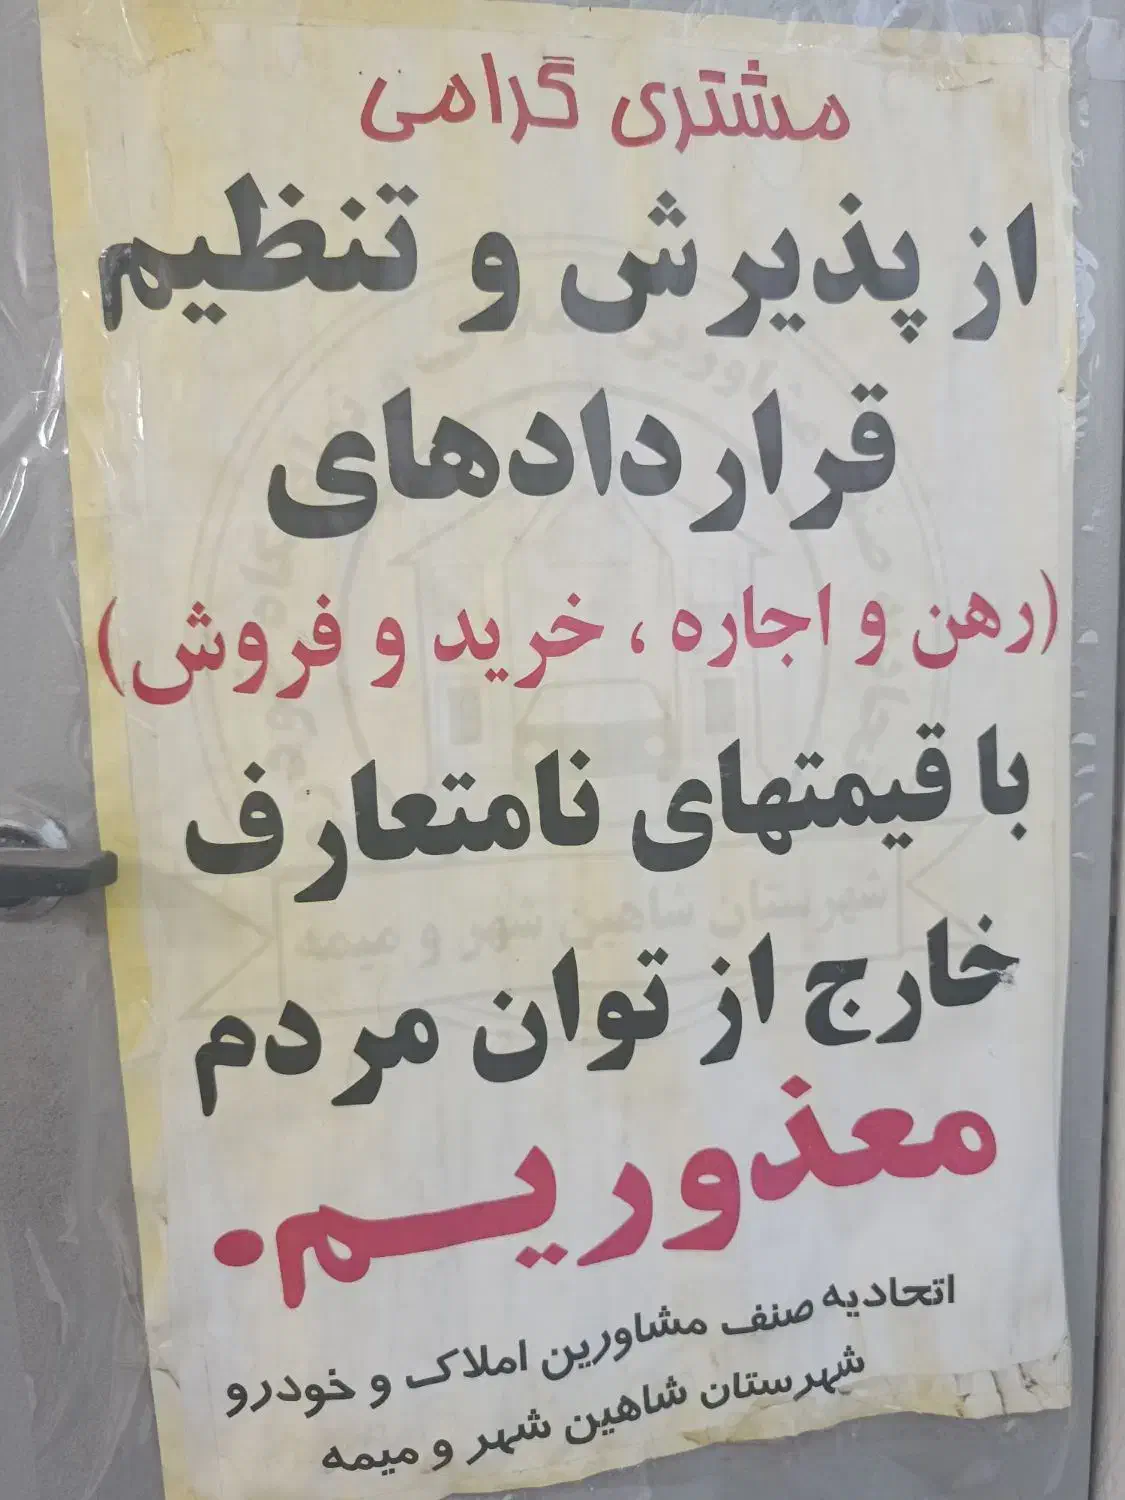 مشتری گرامی
از پذیرش و تنظیم
قراردادهای
(رهن و اجاره ، خرید و فروش)
با قیمتهای نامتعارف
خارج از توان مردم
معذوریم.
اتحادیه صنف مشاورین املاک و خودرو
شهرستان شاهین شهر و میمه
شهرستان شاهین شهر و میمه